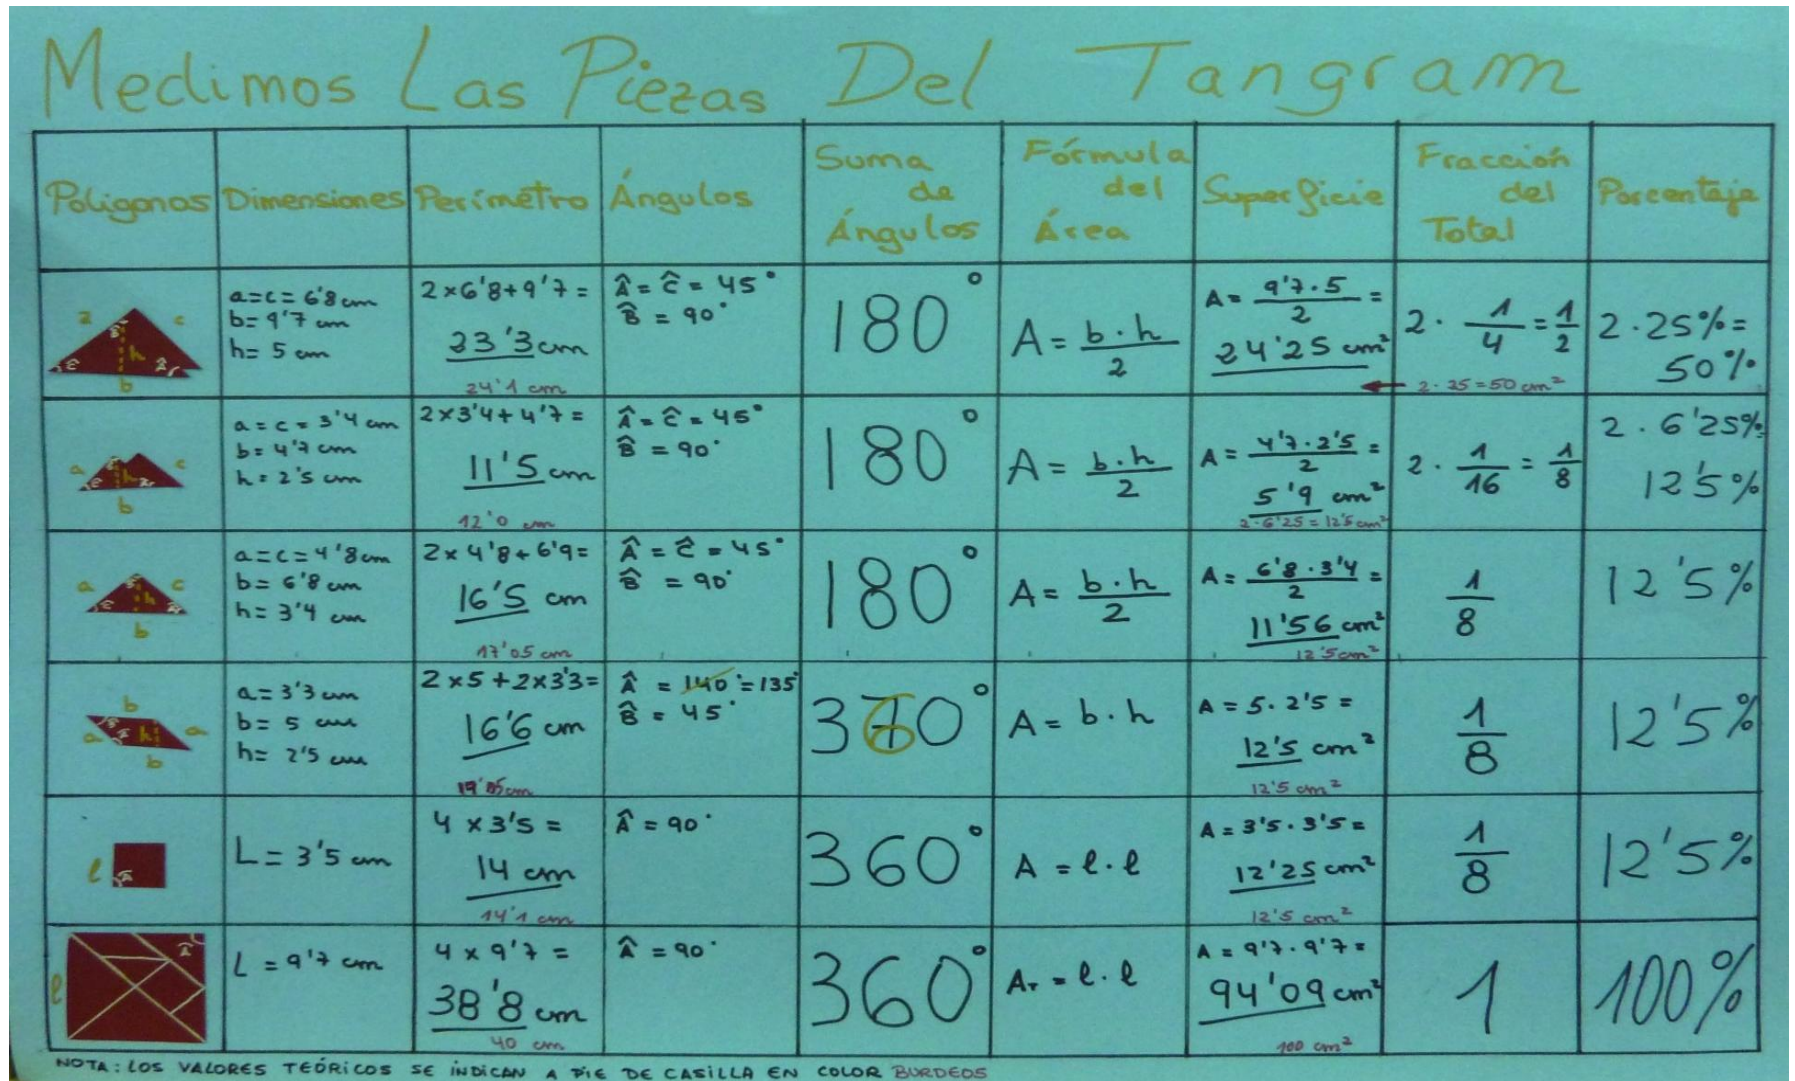 Medimos Las Piezas Del Tangram
Poligonos Dimensiones Perímetro Ángulos Suma de Ángulos Fórmula del Área Superficie Fracción del Total Porcentaje
a=c= 6'8 cm
b= 9'7 cm
h= 5 cm
2×6'8+9'7=
23'3 cm
24'1 cm
Â= Ĉ = 45°
B̂ = 90°
180°
A= b·h/2
A= 9'7·5/2 =
24'25 cm²
2· 1/4 = 1/2
2·25=50 cm²
2·25%=
50%
a = c = 3'4 cm
b= 4'7 cm
h= 2'5 cm
2×3'4+4'7=
11'5 cm
12'0 cm
Â= Ĉ = 45°
B̂ = 90°
180°
A= b·h/2
A= 4'7·2'5/2 =
5'9 cm²
2·6'25=12'5 cm²
2· 1/16 = 1/8
2·6'25%
12'5%
a=c= 4'8 cm
b= 6'8 cm
h= 3'4 cm
2×4'8+6'9=
16'5 cm
17'05 cm
Â = Ĉ = 45°
B̂ = 90°
180°
A= b·h/2
A= 6'8·3'4/2 =
11'56 cm²
12'5 cm²
1/8
12'5%
a= 3'3 cm
b= 5 cm
h= 2'5 cm
2×5+2×3'3=
16'6 cm
Â = 140°=135°
B̂ = 45°
360°
A= b·h
A= 5·2'5=
12'5 cm²
12'5 cm²
1/8
12'5%
l
L= 3'5 cm
4×3'5=
14 cm
14'1 cm
Â = 90°
360°
A = l·l
A= 3'5·3'5=
12'25 cm²
12'5 cm²
1/8
12'5%
l
L = 9'7 cm
4×9'7=
38'8 cm
40 cm
Â = 90°
360°
AT = l·l
A= 9'7·9'7=
94'09 cm²
100 cm²
1
100%
NOTA: LOS VALORES TEÓRICOS SE INDICAN A PIE DE CASILLA EN COLOR BURDEOS